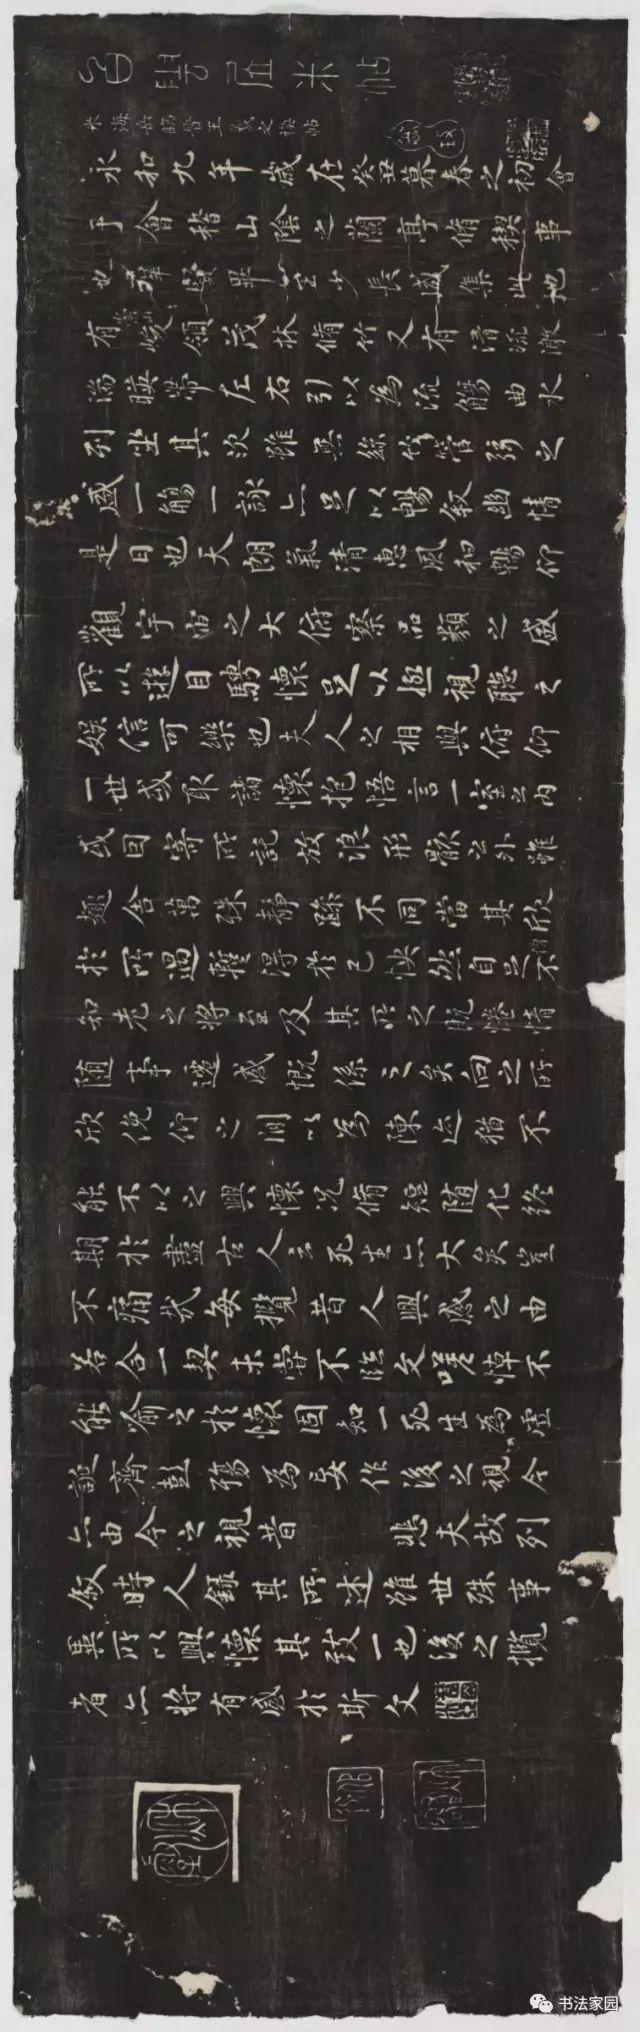 白雲居米帖
米海岳臨晉王羲之禊帖
永和九年歲在癸丑暮春之初會
于會稽山陰之蘭亭脩稧事
也群賢畢至少長咸集此地
有崇山峻領茂林脩竹又有清流激
湍暎帶左右引以為流觴曲水
列坐其次雖無絲竹管弦之
盛一觴一詠亦足以暢敘幽情
是日也天朗氣清惠風和暢仰
觀宇宙之大俯察品類之盛
所以遊目騁懷足以極視聽之
娛信可樂也夫人之相與俯仰
一世或取諸懷抱悟言一室之內
或因寄所託放浪形骸之外雖
趣舍萬殊静躁不同當其欣
於所遇暫得於己怏然自足不
知老之將至及其所之既惓情
随事遷感慨係之矣向之所
欣俛仰之間以為陳迹猶不
能不以之興懷況脩短随化終
期於盡古人云死生亦大矣豈
不痛哉每攬昔人興感之由
若合一契未甞不臨文嗟悼不
能喻之於懷固知一死生為虛
誕齊彭殤為妄作後之視今
亦由今之視昔 悲夫故列
敘時人錄其所述雖世殊事
異所以興懷其致一也後之攬
者亦將有感於斯文
书法家园